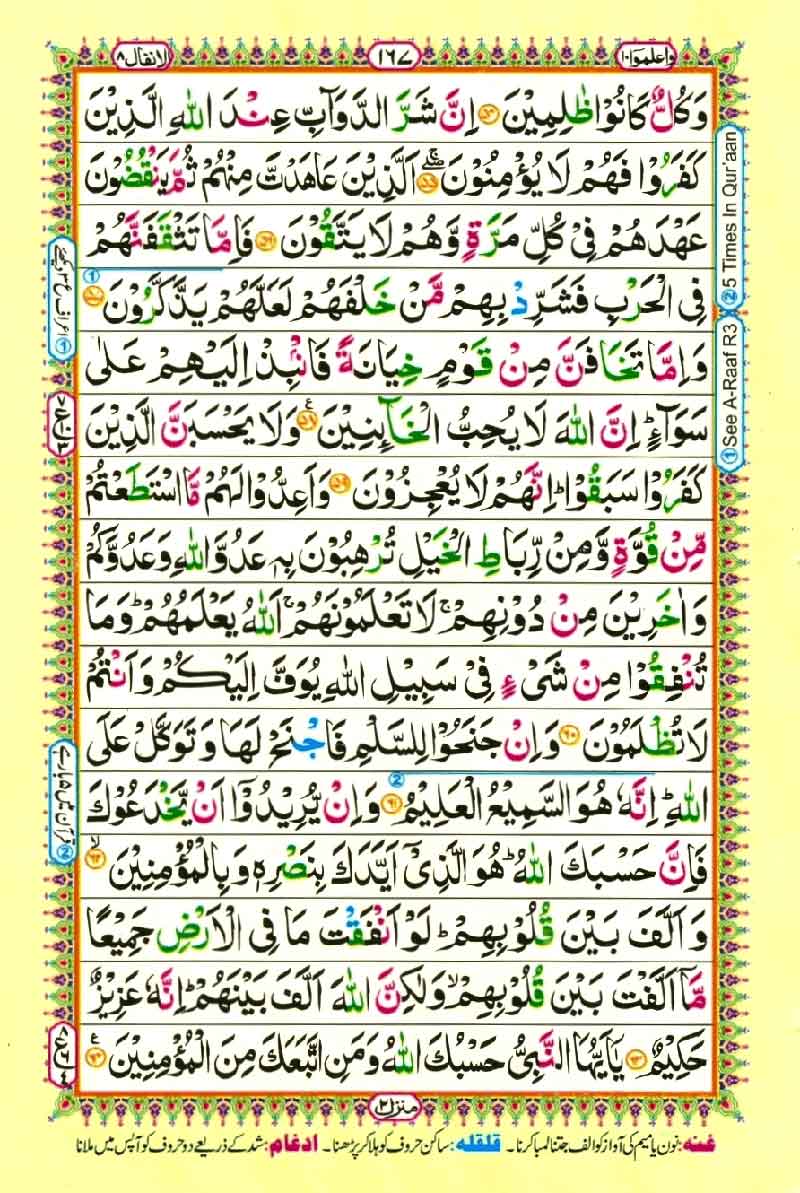 واعلموا ١٠
١٦٧
الانفال ٨
وَكُلٌّ كَانُوْا ظٰلِمِيْنَ ۝٥٤ اِنَّ شَرَّ الدَّوَآبِّ عِنْدَ اللّٰهِ الَّذِيْنَ
كَفَرُوْا فَهُمْ لَا يُؤْمِنُوْنَ ۝٥٥ اَلَّذِيْنَ عَاهَدْتَّ مِنْهُمْ ثُمَّ يَنْقُضُوْنَ
عَهْدَهُمْ فِيْ كُلِّ مَرَّةٍ وَّهُمْ لَا يَتَّقُوْنَ ۝٥٦ فَاِمَّا تَثْقَفَنَّهُمْ
فِي الْحَرْبِ فَشَرِّدْ بِهِمْ مَّنْ خَلْفَهُمْ لَعَلَّهُمْ يَذَّكَّرُوْنَ ۝٥٧
وَاِمَّا تَخَافَنَّ مِنْ قَوْمٍ خِيَانَةً فَانْۢبِذْ اِلَيْهِمْ عَلٰى
سَوَآءٍ ؕ اِنَّ اللّٰهَ لَا يُحِبُّ الْخَآئِنِيْنَ ۝٥٨ وَلَا يَحْسَبَنَّ الَّذِيْنَ
كَفَرُوْا سَبَقُوْا ؕ اِنَّهُمْ لَا يُعْجِزُوْنَ ۝٥٩ وَاَعِدُّوْا لَهُمْ مَّا اسْتَطَعْتُمْ
مِّنْ قُوَّةٍ وَّمِنْ رِّبَاطِ الْخَيْلِ تُرْهِبُوْنَ بِهٖ عَدُوَّ اللّٰهِ وَعَدُوَّكُمْ
وَاٰخَرِيْنَ مِنْ دُوْنِهِمْ ۚ لَا تَعْلَمُوْنَهُمْ ۚ اَللّٰهُ يَعْلَمُهُمْ ؕ وَمَا
تُنْفِقُوْا مِنْ شَيْءٍ فِيْ سَبِيْلِ اللّٰهِ يُوَفَّ اِلَيْكُمْ وَاَنْتُمْ
لَا تُظْلَمُوْنَ ۝٦٠ وَاِنْ جَنَحُوْا لِلسَّلْمِ فَاجْنَحْ لَهَا وَتَوَكَّلْ عَلَى
اللّٰهِ ؕ اِنَّهٗ هُوَ السَّمِيْعُ الْعَلِيْمُ ۝٦١ وَاِنْ يُّرِيْدُوْٓا اَنْ يَّخْدَعُوْكَ
فَاِنَّ حَسْبَكَ اللّٰهُ ؕ هُوَ الَّذِيْٓ اَيَّدَكَ بِنَصْرِهٖ وَبِالْمُؤْمِنِيْنَ ۝٦٢
وَاَلَّفَ بَيْنَ قُلُوْبِهِمْ ؕ لَوْ اَنْفَقْتَ مَا فِي الْاَرْضِ جَمِيْعًا
مَّآ اَلَّفْتَ بَيْنَ قُلُوْبِهِمْ ۙ وَلٰكِنَّ اللّٰهَ اَلَّفَ بَيْنَهُمْ ؕ اِنَّهٗ عَزِيْزٌ
حَكِيْمٌ ۝٦٣ يٰٓاَيُّهَا النَّبِيُّ حَسْبُكَ اللّٰهُ وَمَنِ اتَّبَعَكَ مِنَ الْمُؤْمِنِيْنَ ۝٦٤
② 5 Times In Qur'aan
① See A-Raaf R3
① اعراف ع ٣ دیکھئے
② قرآن میں ۵ بار ہے
منزل ٢
غنه: نون یا میم کی آواز کو الف جتنا لمبا کرنا۔ قلقله: ساکن حروف کو ہلا کر پڑھنا۔ ادغام: شد کے ذریعے دو حروف کو آپس میں ملانا